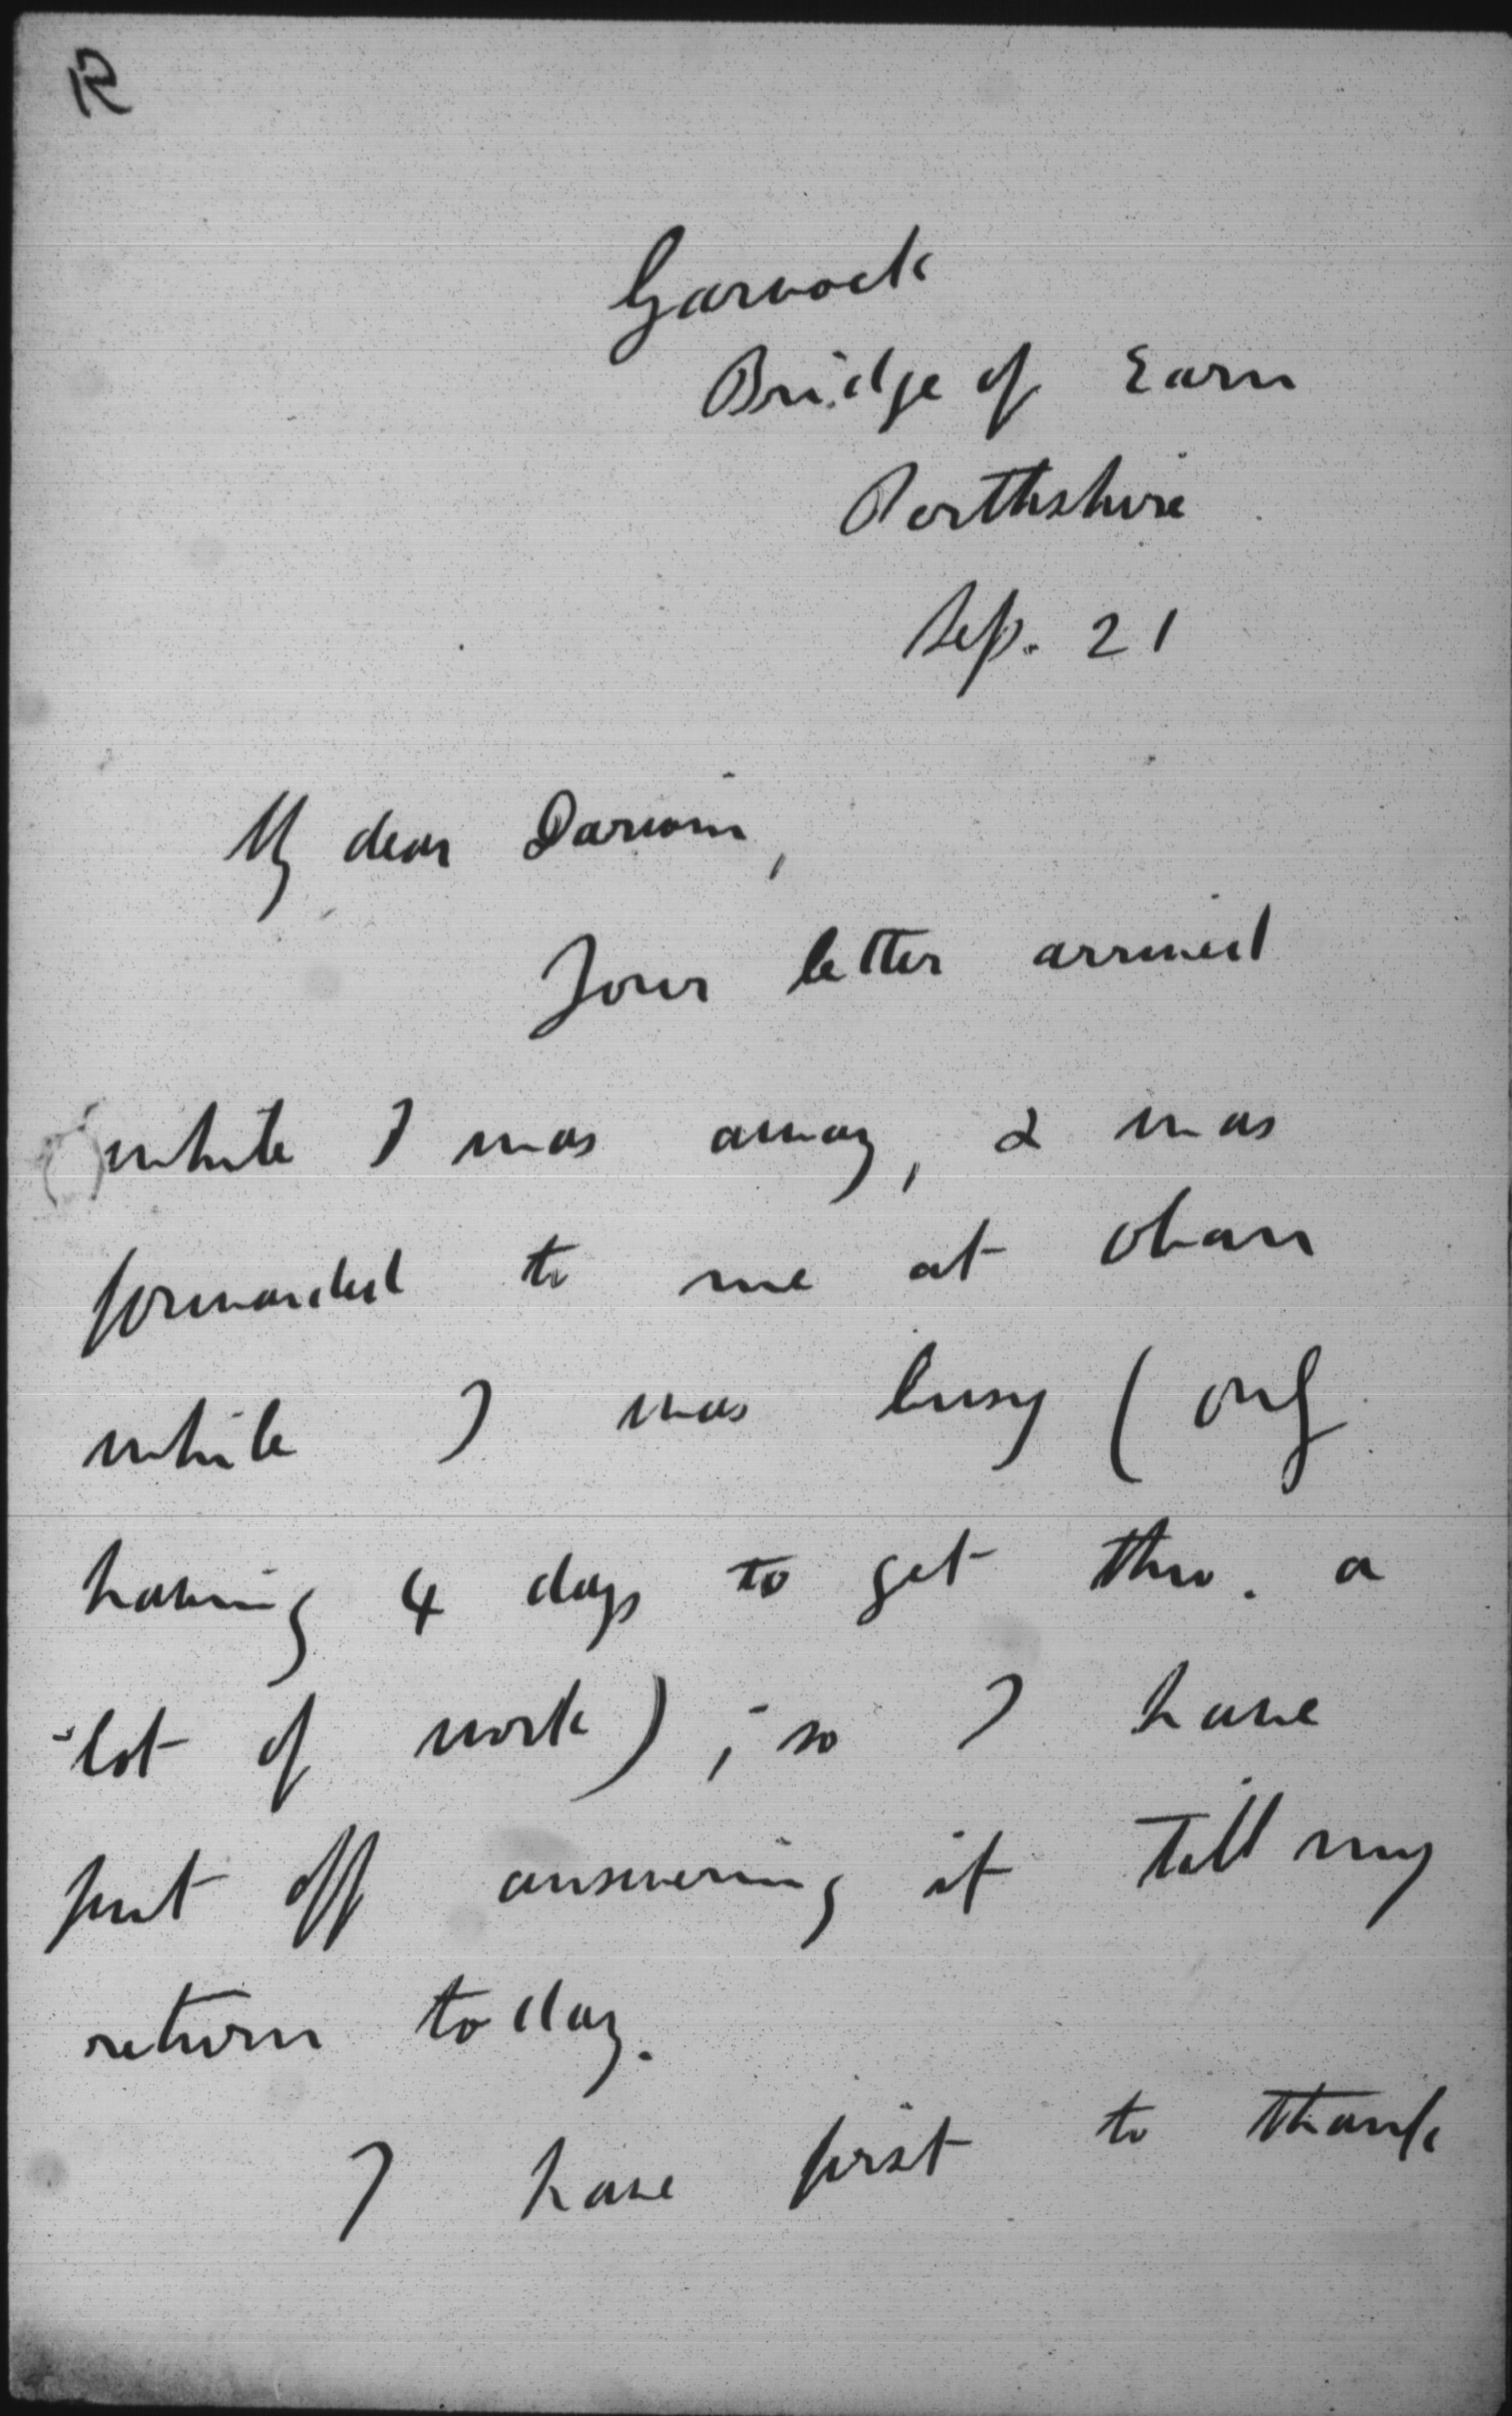 R
Garvock
Bridge of Earn
Perthshire
Sep. 21
My dear Darwin,
Your letter arrived
while I was away, & was
forwarded to me at Oban
while I was busy (only
having 4 days to get thro. a
lot of work); so I have
put off answering it till my
return today.
I have first to thank